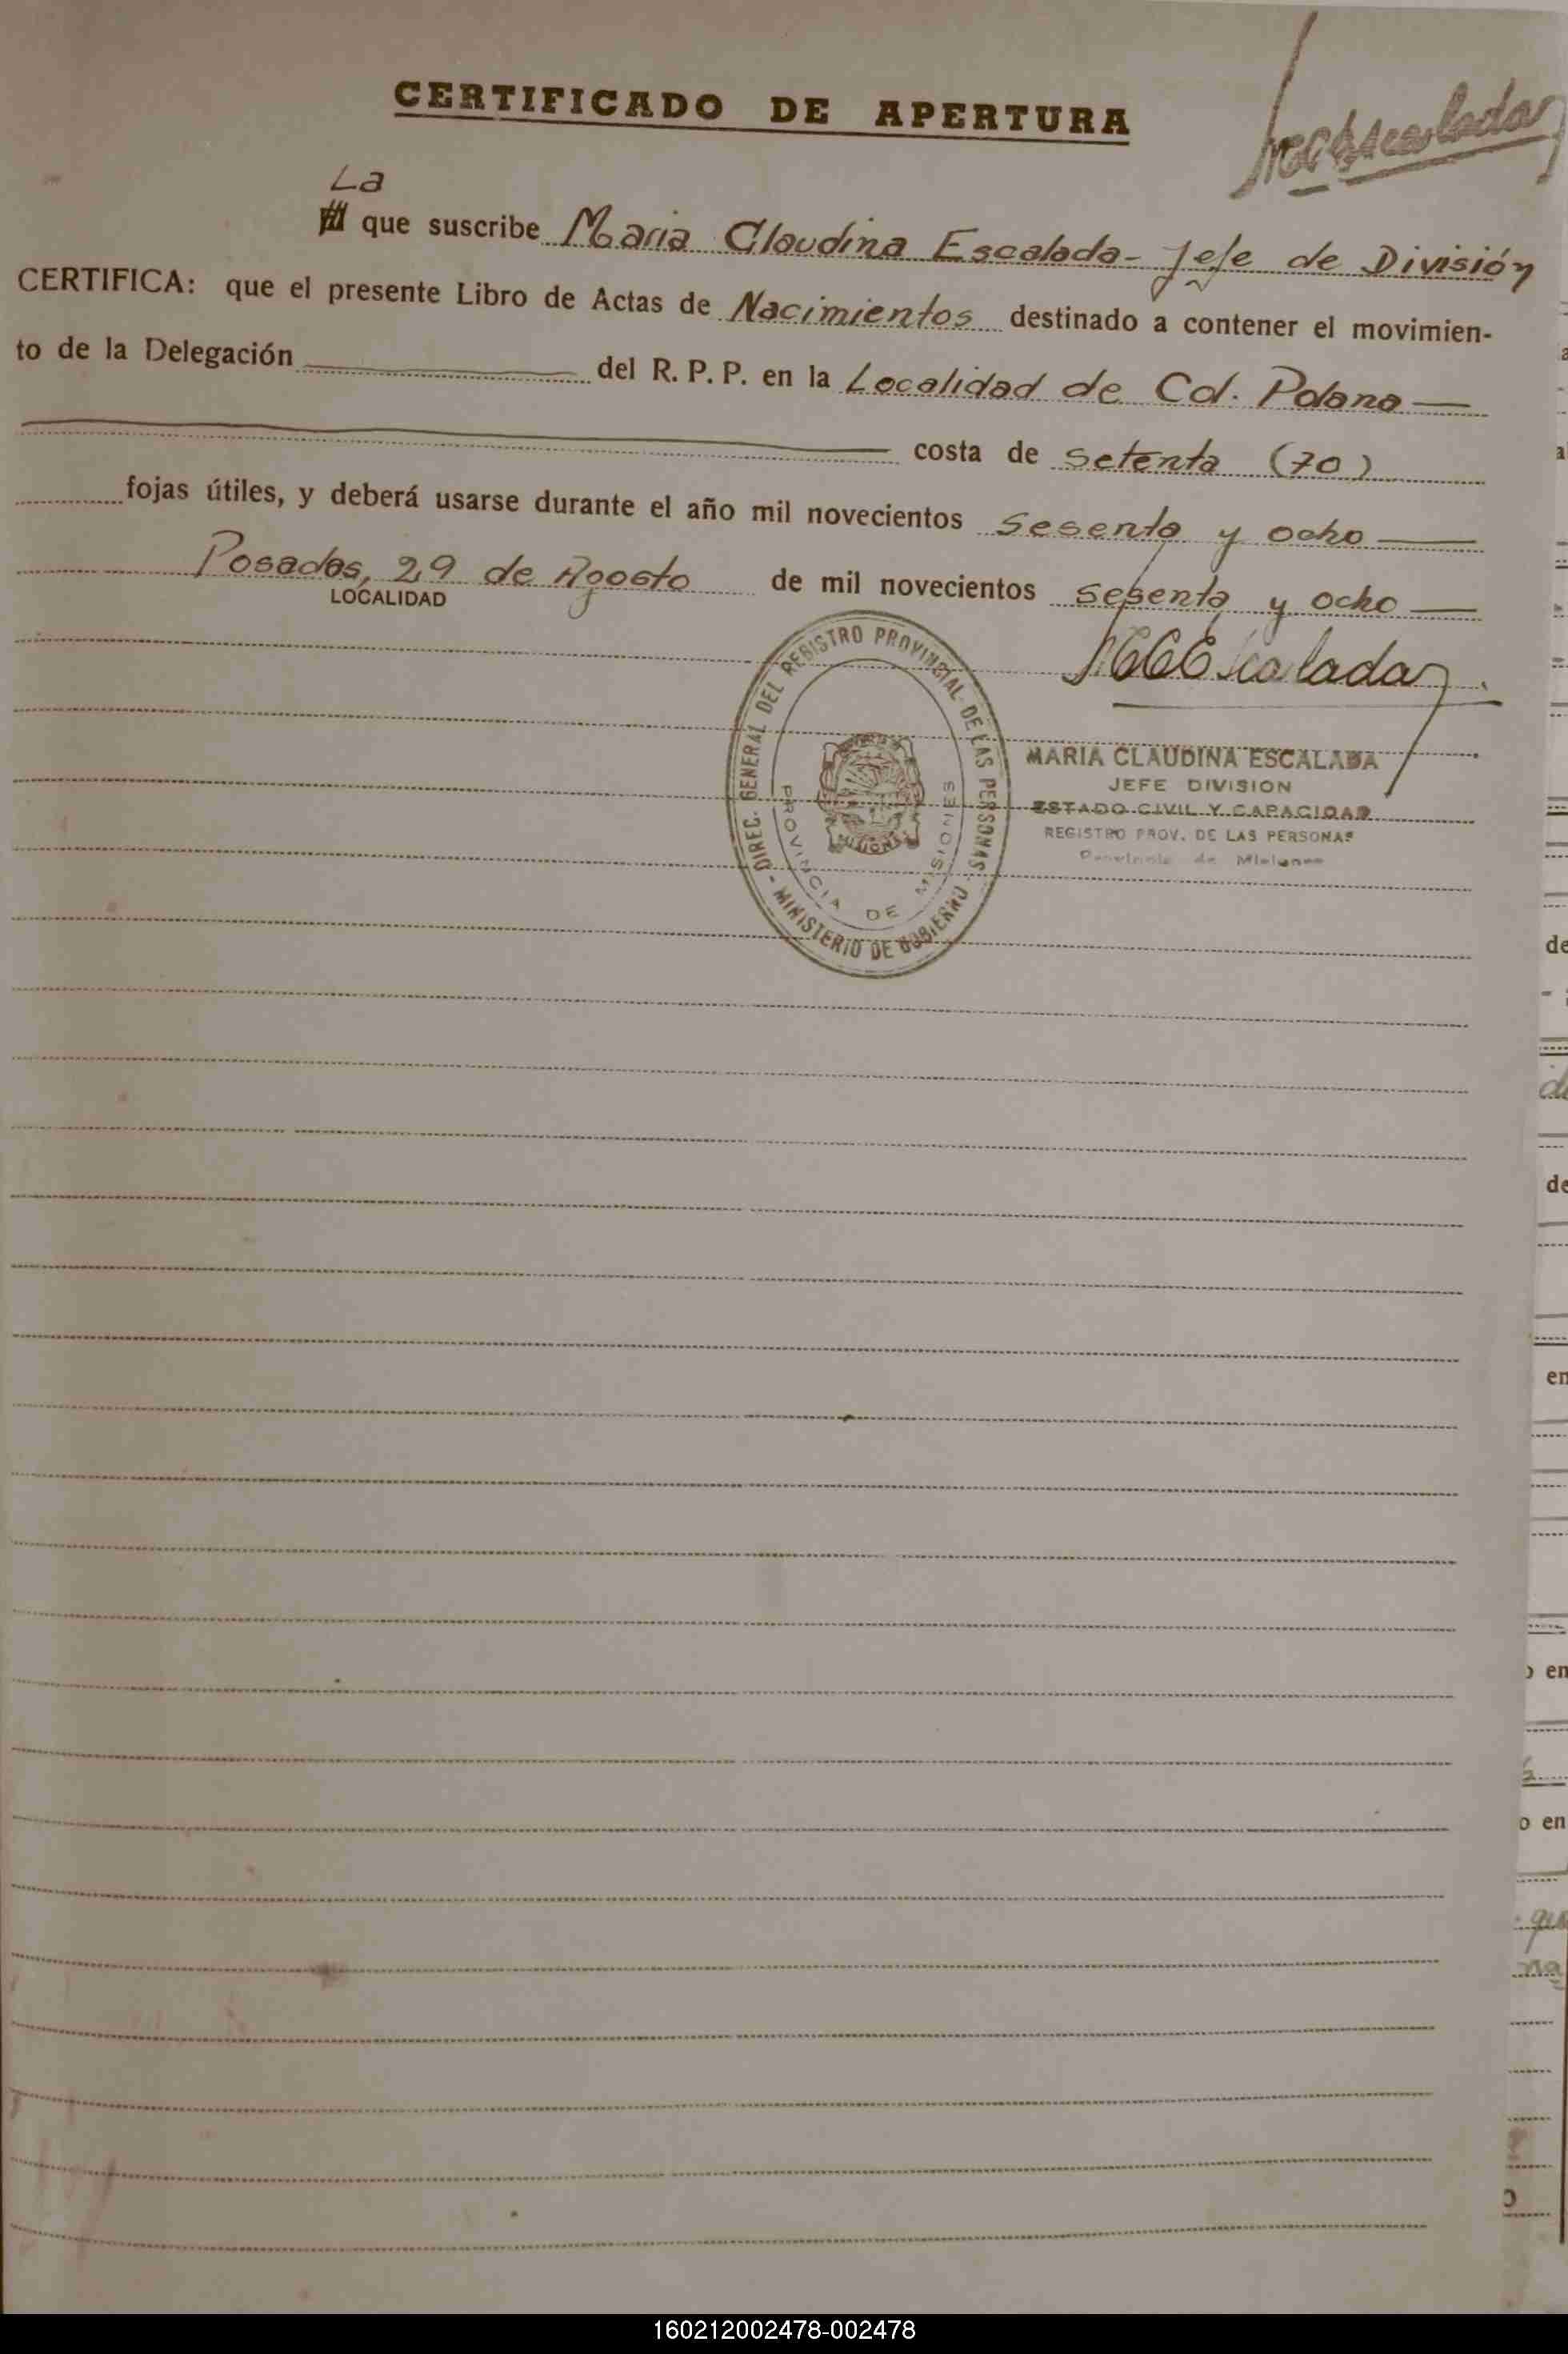 CERTIFICADO DE APERTURA
MCEscalada
La
que suscribe Maria Claudina Escalada - Jefe de División
CERTIFICA: que el presente Libro de Actas de Nacimientos destinado a contener el movimien-
to de la Delegación del R. P. P. en la Localidad de Col. Polana
costa de setenta (70)
fojas útiles, y deberá usarse durante el año mil novecientos sesenta y ocho
Posadas, 29 de Agosto de mil novecientos sesenta y ocho
LOCALIDAD
MCEscalada
DIREC. GENERAL DEL REGISTRO PROVINCIAL DE LAS PERSONAS - MINISTERIO DE GOBIERNO -
PROVINCIA DE MISIONES
MISIONES
MARIA CLAUDINA ESCALADA
JEFE DIVISION
ESTADO CIVIL Y CAPACIDAD
REGISTRO PROV. DE LAS PERSONAS
Provincia de Misiones
de
de
en
o en
o en
160212002478-002478